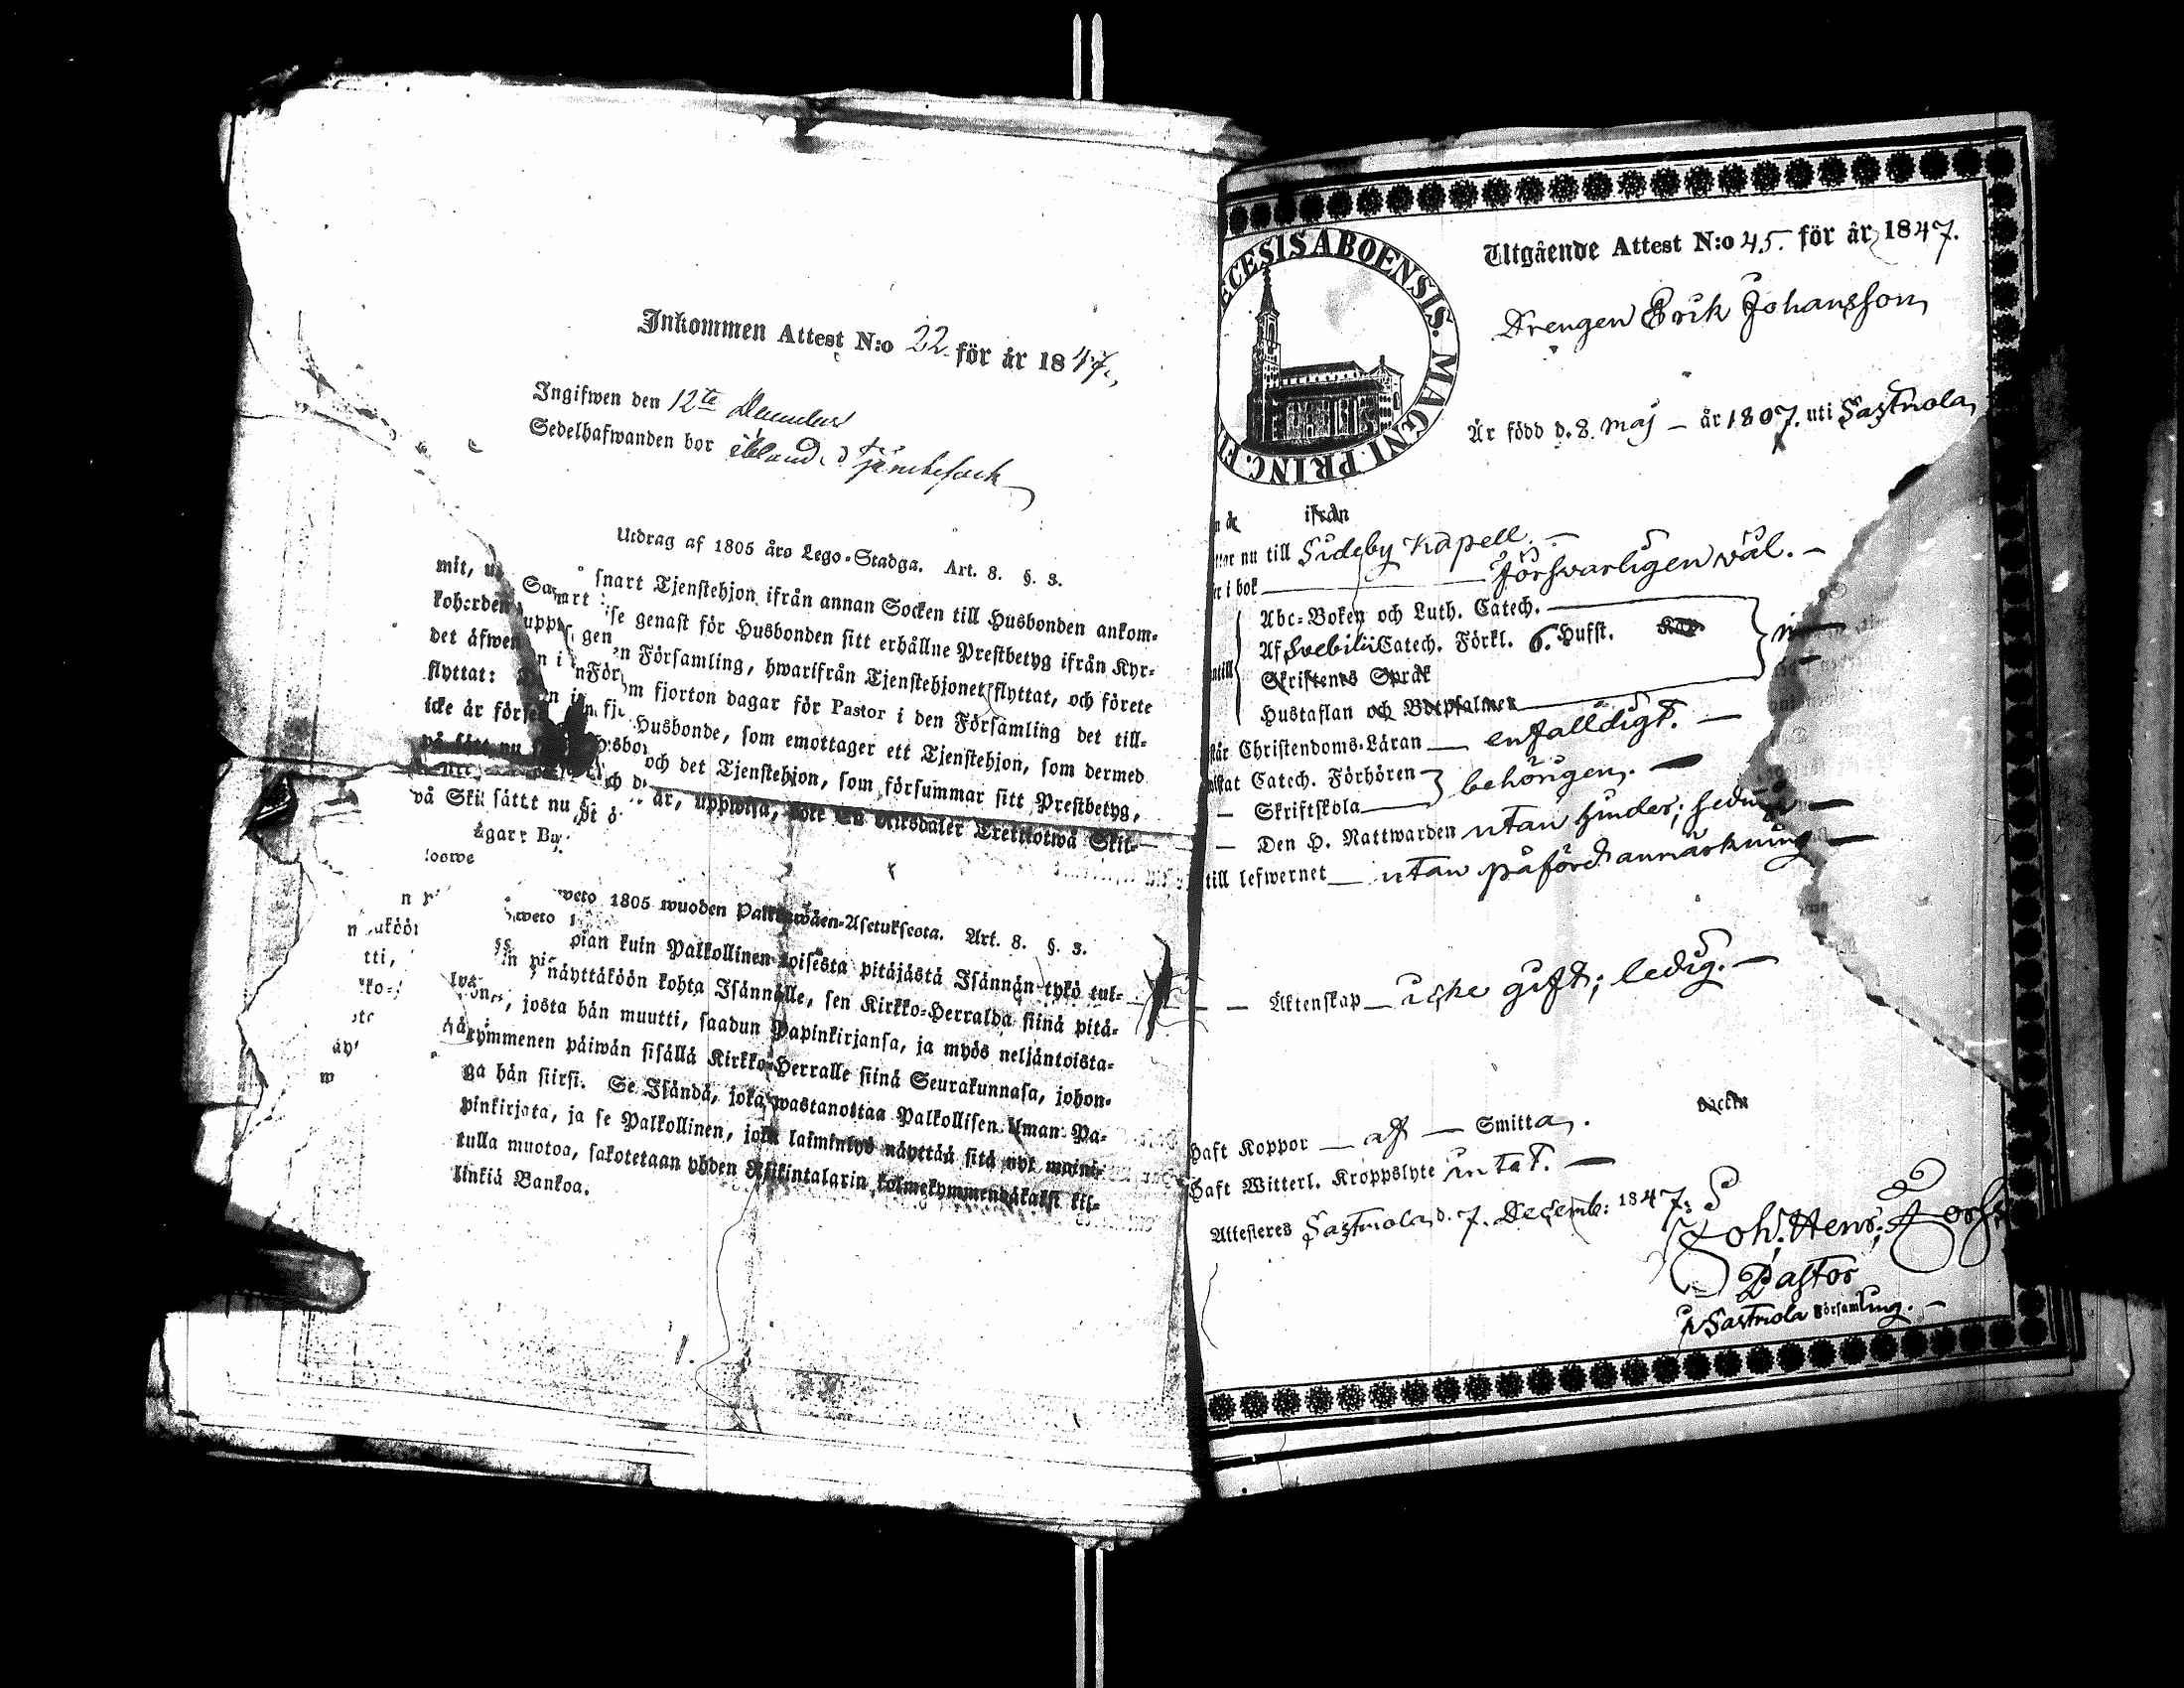 Inkommen Attest N:o 22 för år 1847.
Ingifwen den 12te December
Sedelhafwanden bor ibland
Utdrag af 1805 års Lego-Stadga. Art. 8. §. 3.
snart Tjenstehjon ifrån annan Socken till Husbonden ankom-
mit, genast för Husbonden sitt erhållne Prestbetyg ifrån Kyr-
koherden Församling, hwarifrån Tjenstehjonet flyttat, och förete
det äfwen fjorton dagar för Pastor i den Församling det till-
flyttat: Husbonde, som emottager ett Tjenstehjon, som dermed
icke är och det Tjenstehjon, som försummar sitt Prestbetyg,
på sätt nu är, uppwisa, böte En Riksdaler Trettiotwå Skil-
1805 wuoden Palkawäen-Asetuksesta. Art. 8. §. 3.
pian kuin Palkollinen toisesta pitäjästä Isännän tykö tul-
näyttäköön kohta Isännälle, sen Kirkko-Herralda siinä pitä-
josta hän muutti, saadun Papinkirjansa, ja myös neljäntoista-
kymmenen päiwän sisällä Kirkko-Herralle siinä Seurakunnasa, johon-
ga hän siirsi. Se Isändä, joka wastanottaa Palkollisen ilman Pa-
pinkirjata, ja se Palkollinen, joka laiminlyö näyttää sitä nyt maini-
tulla muotoa, sakotetaan yhden Riikintalarin kolmekymmendäkaksi kil-
linkiä Bankoa.
1.
ECESIS ABOENSIS. MAGNI PRINC. FI
Utgående Attest N:o 45. för år 1847.
Drengen Erik Johansson
Är född d. 8. Maj — år 1807. uti Sastmola
ifrån
nu till Sideby Kapell. —
i bok — försvarligen väl. —
Abc-Boken och Luth. Catech.
Af Svebilii Catech. Förkl. 6. Hufst.
Skriftenes Språk
Hustaflan och Botpsalmer
Christendoms-Läran — enfalldigt. —
Catech. Förhören behörigen. —
— Skriftskola
— Den H. Nattwarden utan hinder;
till lefwernet — utan påförd anmärkning —
— — Äktenskap — icke gift; ledig. —
Haft Koppor — af — Smitta. Vaccin
Haft Witterl. Kroppslyte intet. —
Attesteres Sastmola d. 7. Decemb: 1847:
Joh. Henr.
Pastor
i Sastmola Församling. —